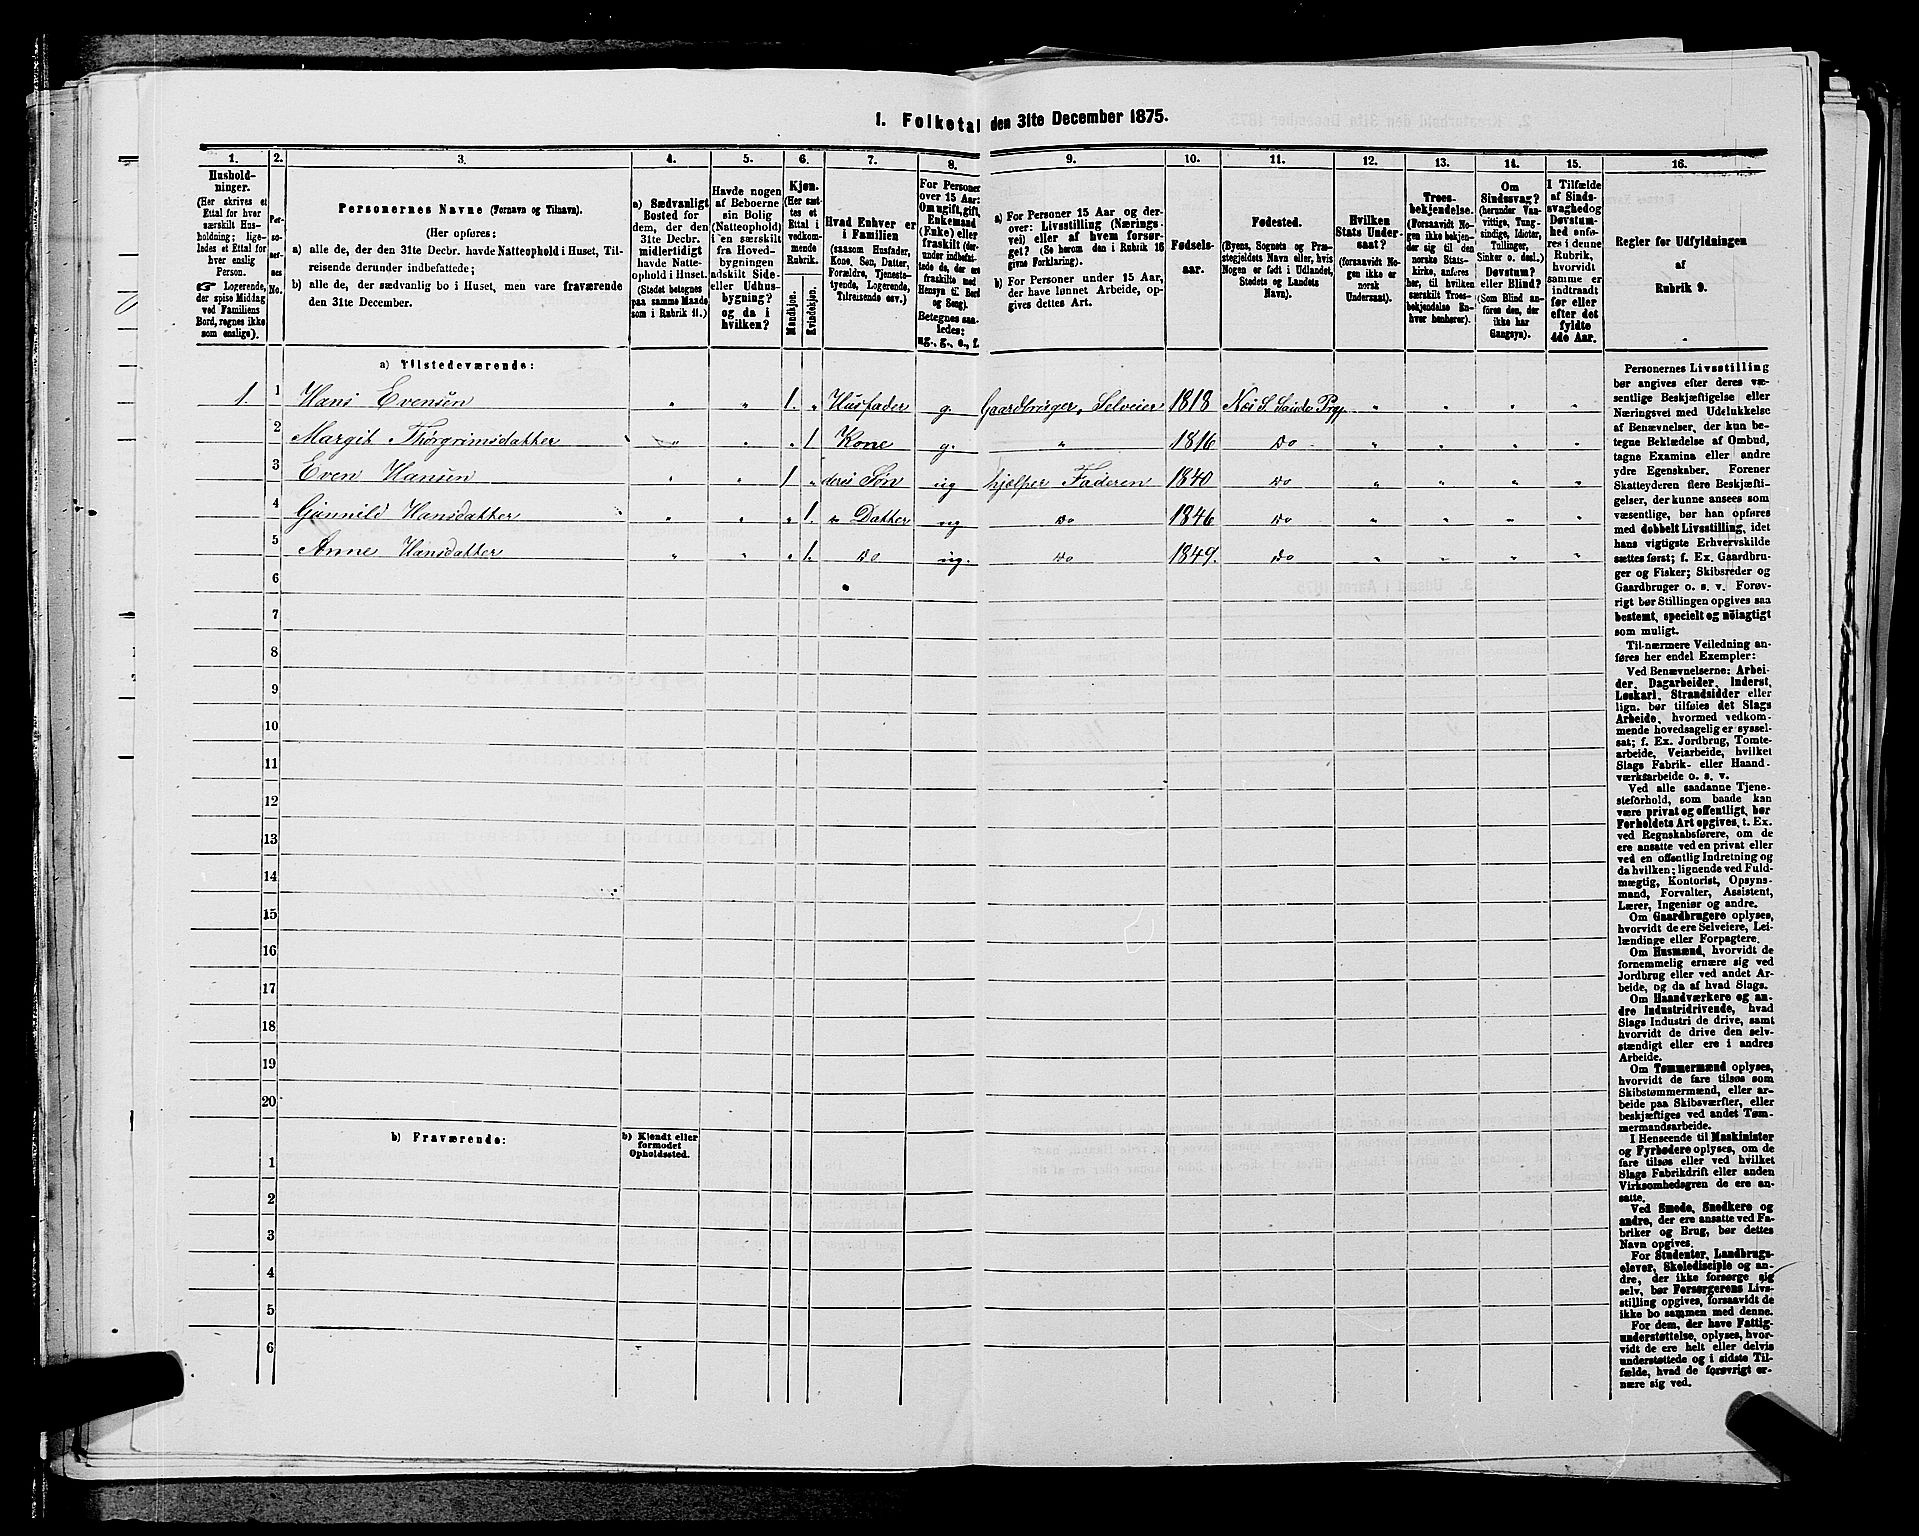 1. Folketal den 31te December 1875.
1. 2. 3. 4. 5. 6. 7. 8. 9. 10. 11. 12. 13. 14. 15. 16.
Husholdninger.
(Her skrives et
Ettal for hver
særskilt Husholdning;
ligeledes et Ettal for
hver enslig
Person.
☞ Logerende,
der spise Middag
ved Familiens
Bord, regnes ikke
som enslige).
Personernes No.
Personernes Navne (Fornavn og Tilnavn).
(Her opføres:
a) alle de, der den 31te Decbr. havde Natteophold i Huset, Tilreisende derunder indbefattede;
b) alle de, der sædvanlig bo i Huset, men vare fraværende
den 31te December.
a) Sædvanligt
Bosted for
dem, der den
31te Decbr.
midlertidigt
havde Natteophold i Huset.
(Stedet betegnes
paa samme Maade
som i Rubrik 11.)
Havde nogen
af Beboerne
sin Bolig
(Natteophold)
i en særskilt
fra Hovedbygningen
adskilt Side-
eller Udhusbygning?
og da i
hvilken?
Kjøn.
(Her sættes et
Ettal i
vedkommende
Rubrik.
Mandkjøn.
Kvindekjøn.
Hvad Enhver er
i Familien
(saasom Husfader,
Kone, Søn, Datter,
Forældre, Tjenestetyende, Logerende,
Tilreisende osv.)
For Personer
over 15 Aar:
Om ugift, gift,
Enkemand
(Enke) eller
fraskilt (derunder indbefattede de, der ere
fraskilte med
Hensyn til Bord
og Seng).
Betegnes saaledes:
ug., g., e., f.
a) For Personer 15 Aar og derover: Livsstilling (Næringsvei) eller af hvem forsørget? (Se herom den i Rubrik 16
givne Forklaring).
b) For Personer under 15 Aar,
der have lønnet Arbeide, opgives dettes Art.
Fødselsaar.
Fødested.
(Byens, Sognets og Præstegjeldets Navn, eller, hvis
Nogen er født i Udlandet,
Stedets og Landets
Navn).
Hvilken
Stats Undersaat?
(forsaavidt Nogen ikke er
norsk
Undersaat).
Troesbekjendelse.
(Forsaavidt Nogen ikke bekjender sig til den
norske Statskirke, anføres
her, til hvilken
særskilt Troesbekjendelse Enhver henhører).
Om
Sindssvag?
(herunder Vanvittige, Tungsindige, Idioter,
Tullinger,
Sinker o. desl.)
Døvstum?
eller Blind?
(Som Blind anføres den, der
ikke har
Gangsyn).
I Tilfælde
af Sindssvaghed og
Døvstumhed anføres i denne
Rubrik,
hvorvidt
samme er
indtraadt
før eller
efter det
fyldte
4de Aar.
Regler for Udfyldningen
af
Rubrik 9.
a) Tilstedeværende:
1. 1 Hans Evensen „ „ 1. „ Husfader g. Gaardbruger, Selveier 1818 Næs S. Sauде Prgj „ „ „ „
2 Margit Thorgrimsdatter „ „ „ 1 Kone g. „ 1816 Do „ „ „ „
3 Even Hansen „ „ 1 „ deres Søn ug hjælper Faderen 1840 Do „ „ „ „
4 Gunnild Hansdatter „ „ „ 1. „ Datter ug Do 1846 Do „ „ „ „
5 Anne Hansdatter „ „ „ 1. Do ug. Do 1849. Do „ „ „ „
6
7
8
9
10
11
12
13
14
15
16
17
18
19
20
b) Fraværende:
b) Kjendt eller
formodet
Opholdssted.
1
2
3
4
5
6
Personernes Livsstilling
bør angives efter deres væsentlige Beskjæftigelse eller
Næringsvei med Udelukkelse
af Benævnelser, der kun betegne Beklædelse af Ombud,
tagne Examina eller andre
ydre Egenskaber. Forener
Skatteyderen flere Beskjæftigelser, der kunne ansees som
væsentlige, bør han opføres
med dobbelt Livsstilling, idet
hans vigtigste Erhvervskilde
sættes først; f. Ex. Gaardbruger og Fisker; Skibsreder og
Gaardbruger o. s. v. Forøvrigt bør Stillingen opgives saa
bestemt, specielt og nöiagtigt
som muligt.
Til nærmere Veiledning anføres her endel Exempler:
Ved Benævnelserne: Arbeider, Dagarbeider, Inderst,
Løskarl, Strandsidder eller
lign. bør tilføies det Slags
Arbeide, hvormed vedkommende hovedsagelig er sysselsat; f. Ex. Jordbrug, Tomtearbeide, Veiarbeide, hvilket
Slags Fabrik- eller Haandværksarbeide o. s. v.
Ved alle saadanne Tjenesteforhold, som baade kan
være privat og offentligt, bør
Forholdets Art opgives, t. Ex.
ved Regnskabsførere, om de
ere ansatte ved en privat eller
ved en offentlig Indretning og
da hvilken; lignende ved Fuldmægtig, Kontorist, Opsynsmand, Forvalter, Assistent,
Lærer, Ingeniør og andre.
Om Gaardbrugere oplyses,
hvorvidt de ere Selveiere, Leilændinge eller Forpagtere.
Om Husmænd, hvorvidt de
fornemmelig ernære sig ved
Jordbrug eller ved andet Arbeide, og da af hvad Slags.
Om Haandværkere og andre Industridrivende, hvad
Slags Industri de drive, samt
hvorvidt de drive den selvstændigt eller ere i andres
Arbeide.
Om Tømmermænd oplyses,
hvorvidt de fare tilsøs som
Skibstømmermænd, eller arbeide paa Skibsværfter, eller
beskjæftiges ved andet Tømmermandsarbeide.
I Henseende til Maskinister
og Fyrbødere oplyses, om de
fare tilsøs eller ved hvilket
Slags Fabrikdrift eller anden
Virksomhedsgren de ere ansatte.
Ved Smede, Snedkere og
andre, der ere ansatte ved Fabriker og Brug, bør dettes
Navn opgives.
For Studenter, Landbrugselever, Skoledisciple og andre, der ikke forsørge sig
selv, bør Forsørgerens Livsstilling opgives, forsaavidt de
ikke bo sammen med denne.
For dem, der have Fattigunderstøttelse, oplyses, hvorvidt de ere helt eller delvis
understøttede og i sidste Tilfælde, hvad de forøvrigt ernære sig ved.